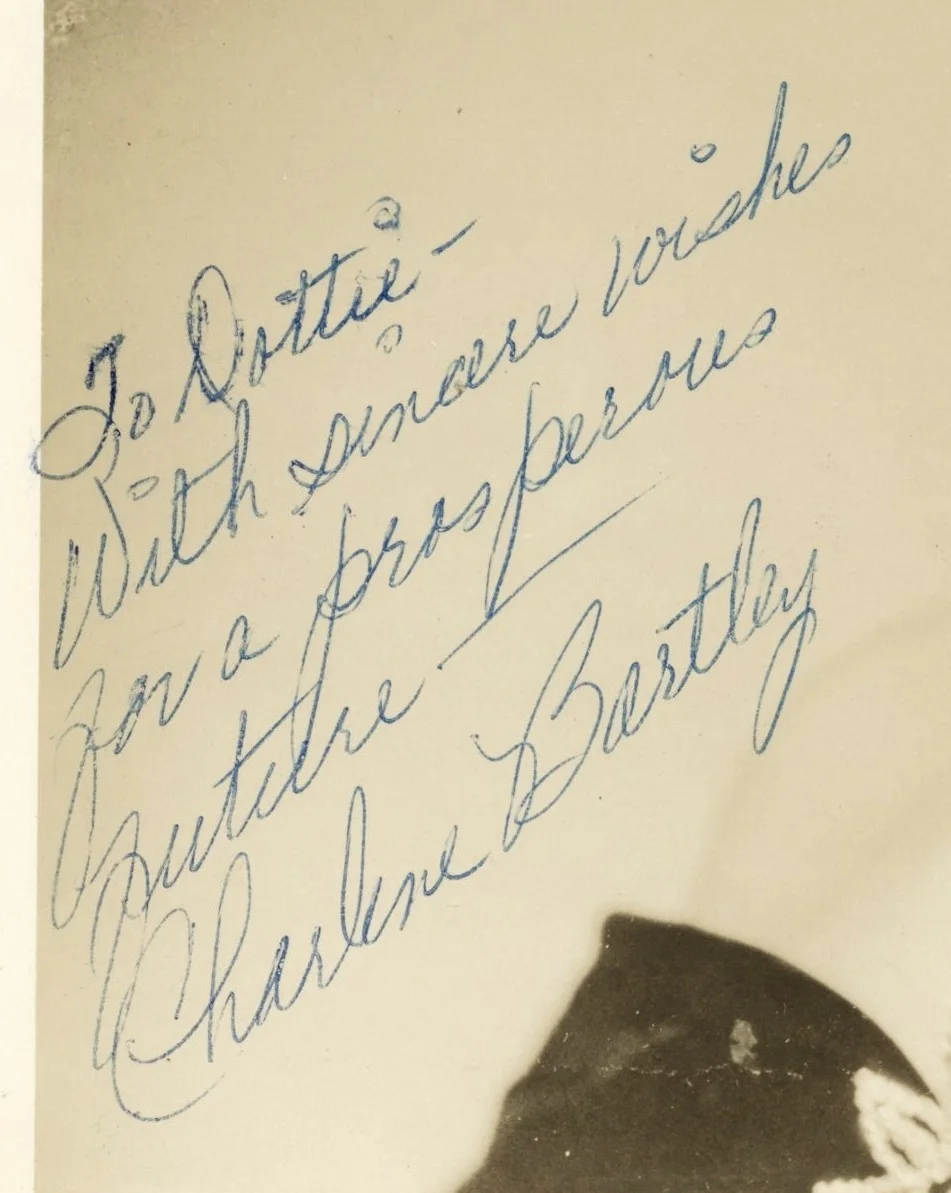 To Dottie -
With sincere wishes
for a prosperous
future -
Charlene Bartley